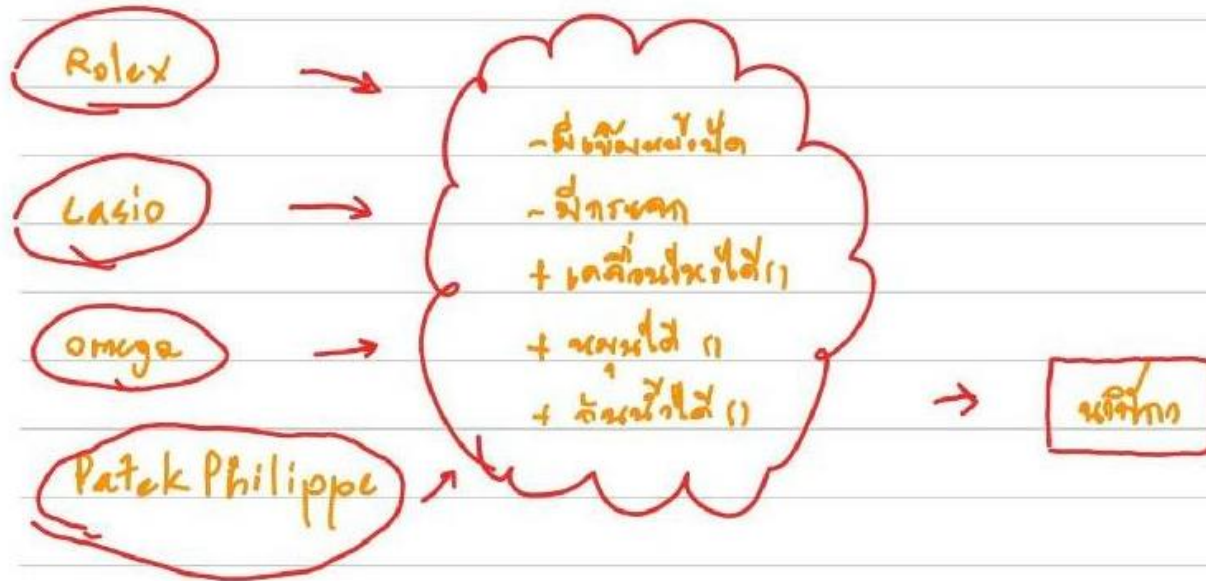 Rolex
Casio
omega
Patek Philippe
- มีเข็มหน้าปัด
- มีกระจก
+ เคลื่อนไหวได้ ()
+ หมุนได้ ()
+ กันน้ำได้ ()
นาฬิกา